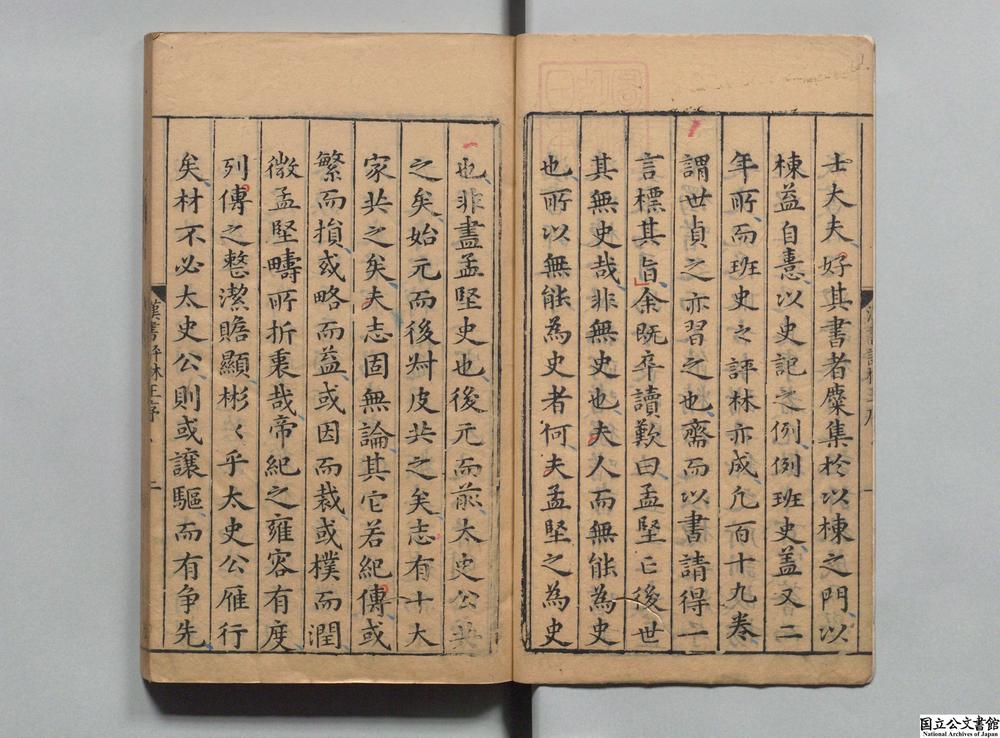 士大夫好其書者麇集於以棟之門以
棟益自憙以史記之例例班史盖又二
年所而班史之評林亦成凢百十九卷
謂世貞之亦習之也齋而以書請得一
言標其旨余既卒讀歎曰孟堅亡後世
其無史哉非無史也夫人而無能為史
也所以無能為史者何夫孟堅之為史
也非盡孟堅史也後元而前太史公共
之矣始元而後叔皮共之矣志有十大
家共之矣夫志固無論其它若紀傳或
繁而損或略而益或因而裁或樸而潤
微孟堅疇所折衷哉帝紀之雍容有度
列傳之整潔贍顯彬〻乎太史公雁行
矣材不必太史公則或讓驅而有争先
漢書評林王序 二
国立公文書館
National Archives of Japan